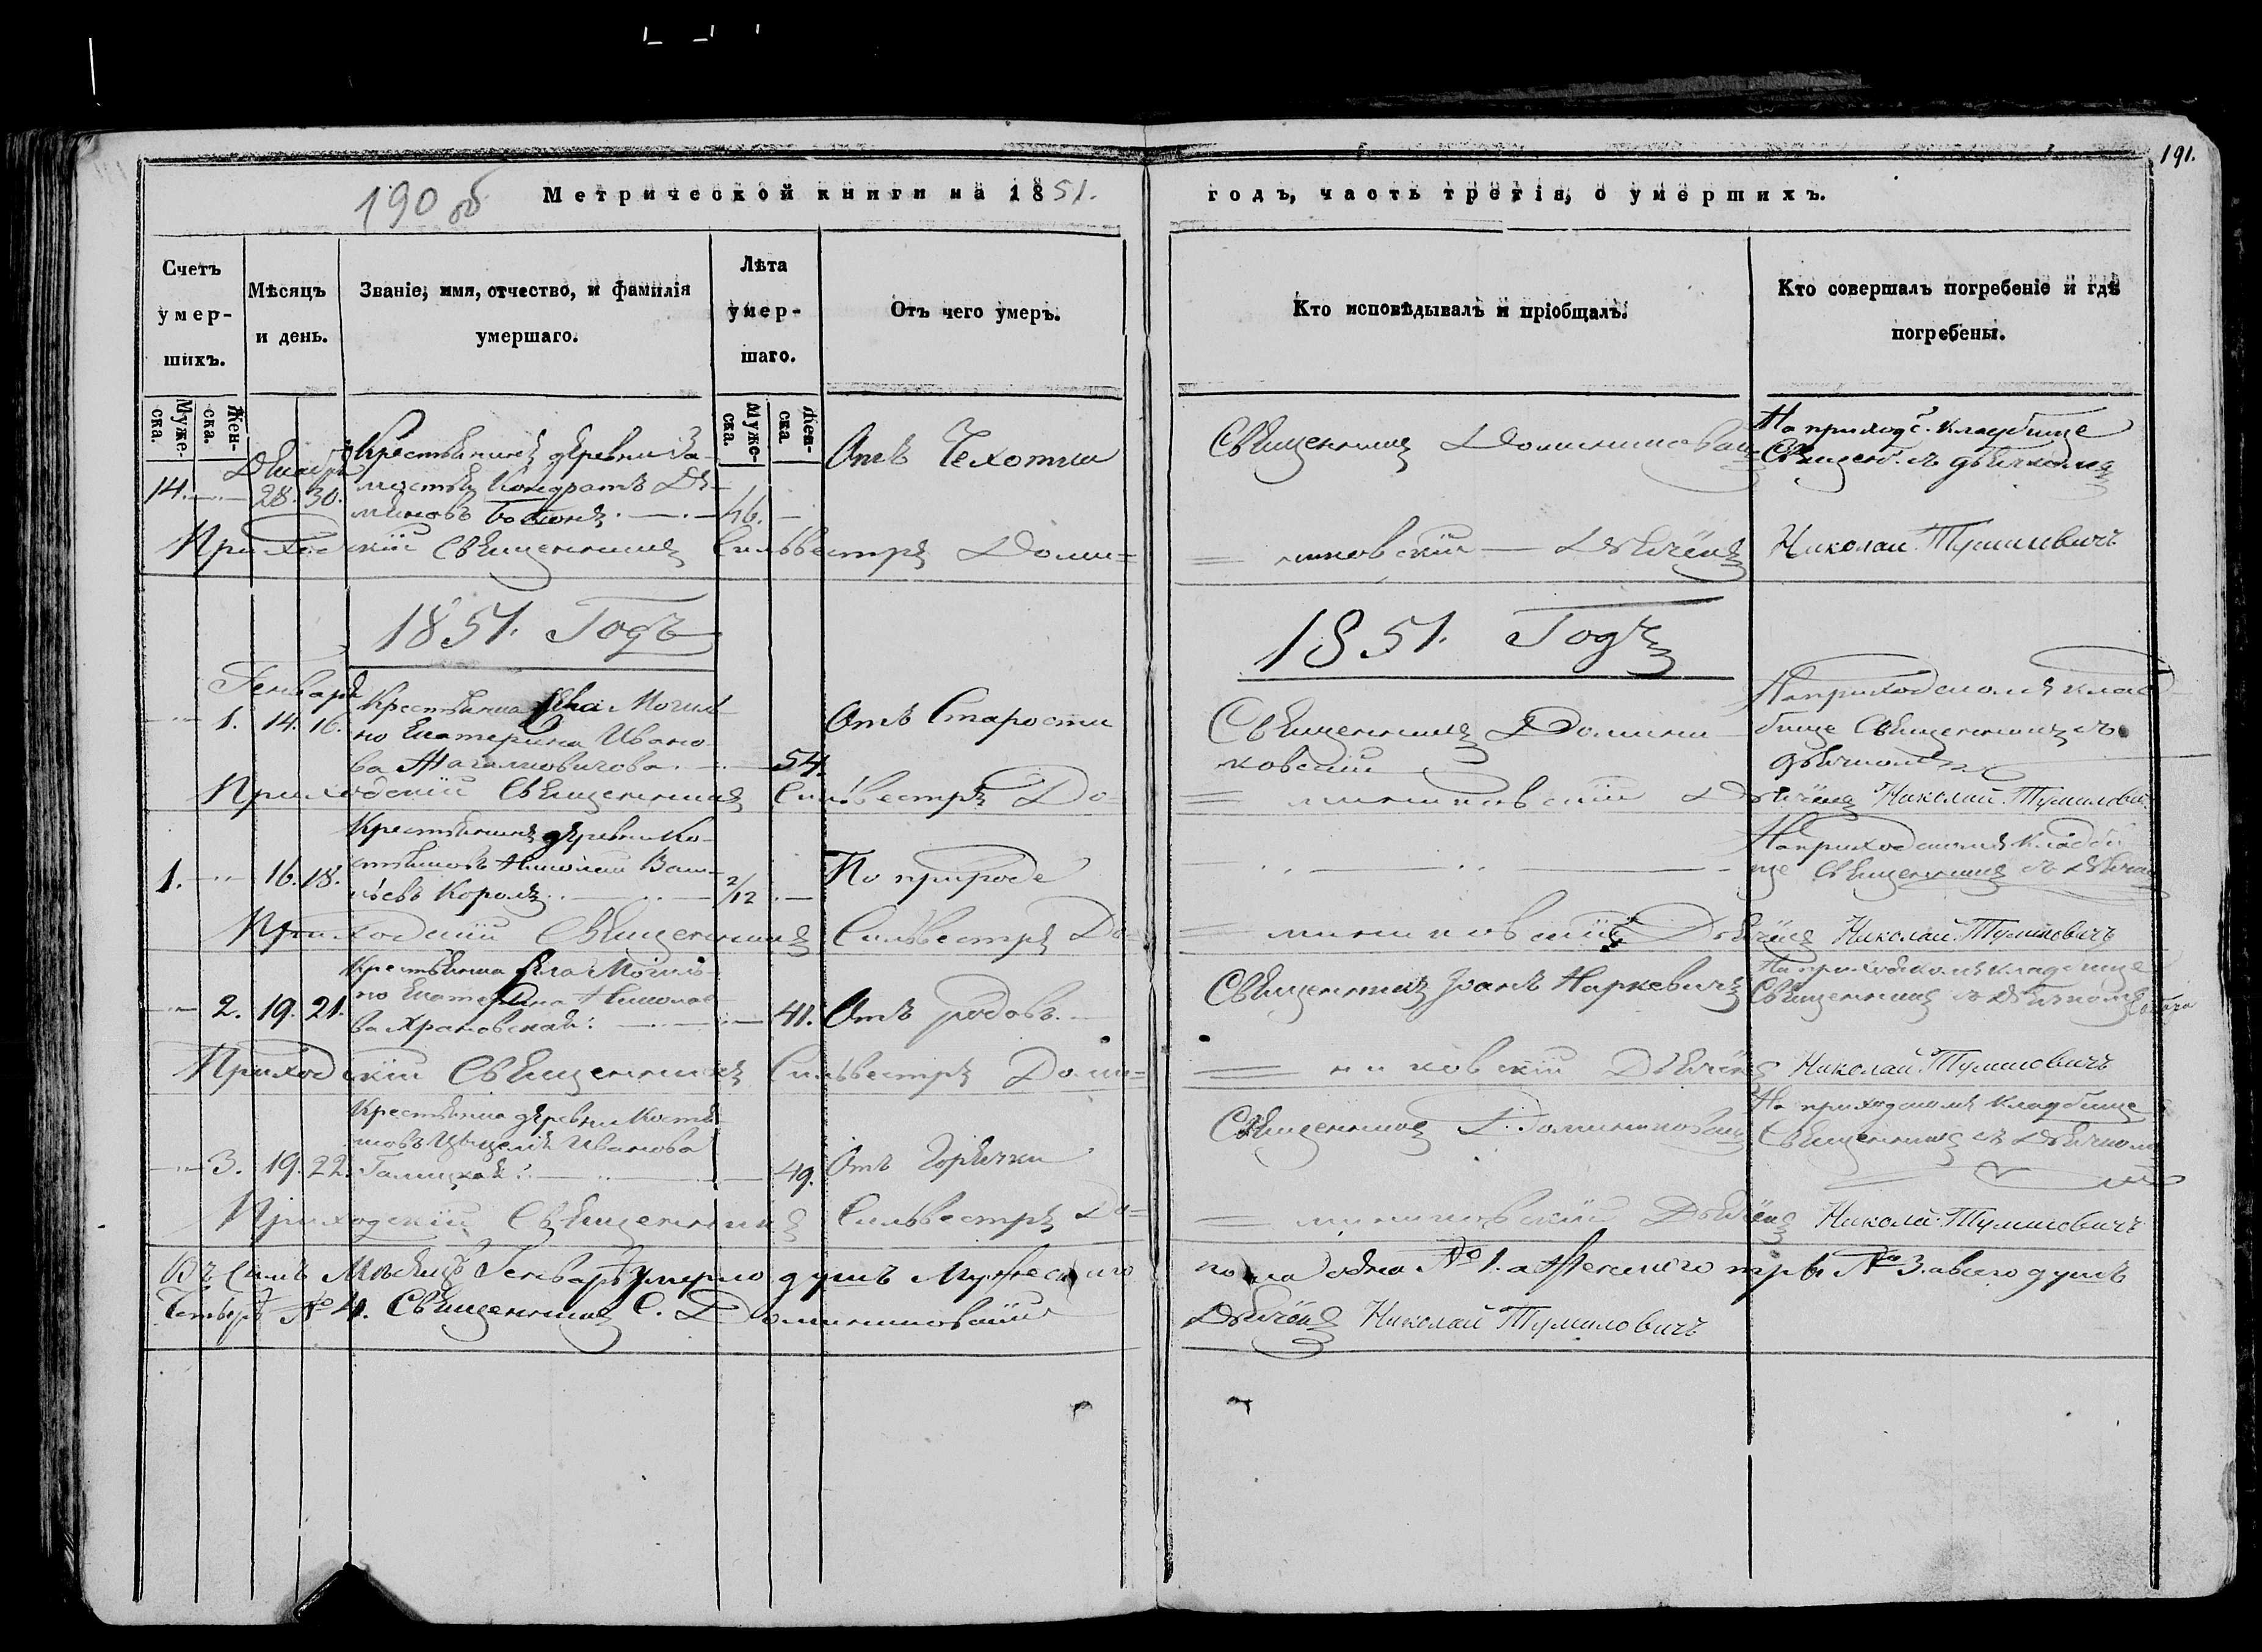 191.
190 об
Метрической книги на 1851.
годъ, часть третія, о умершихъ.
Счетъ умер-шихъ.
Мѣсяцъ и день.
Званіе, имя, отчество, и фамилія умершаго.
Лѣта умер-шаго.
Отъ чего умеръ.
Кто исповѣдывалъ и пріобщалъ.
Кто совершалъ погребеніе и гдѣ погребены.
Муже-ска.
Жен-ска.
Муже-ска.
Жен-ска.
Декабря
14. 28. 30.
Крестьянинъ деревни За-
мостья Кондратъ
46.
Отъ Чехотки
Священникъ Доминиковскій
На приходс. кладбище
Священ. съ дьячкомъ
Приходскій Священникъ Сильвестръ Доми-
никовскій — Дьячёкъ Николай Тумиловичъ
1851. Годъ
1851. Годъ
Генваря
1. 14. 16.
Крестьянка села Могиль-
но Екатерина Ивано-
ва
54.
Отъ Старости
Священникъ Домини
ковскій
На приходскомъ клад
бище Священникъ съ
дьячкомъ
Приходскій Священникъ Сильвестръ До-
миниковскій Дьячёкъ Николай Тумилович
1. 16. 18.
Крестьянинъ деревни Ко-
Николай Васи-
льевъ Король
2/12
По природе
На приходскомъ кладби
ще Священникъ съ Дьячко
Приходскій Священникъ Сильвестръ До-
миниковскій Дьячёкъ Николай Тумиловичъ
2. 19. 21.
Крестьянка села Могиль-
но Екатерина Николае
ва Храновская
41.
Отъ родовъ
Священникъ Іоанъ Наркевичъ
На приходскомъ кладбище
Священникъ съ Дьячкомъ
Приходскій Священникъ Сильвестръ Доми-
никовскій Дьячёкъ Николай Тумиловичъ
3. 19. 22.
Крестьянка деревни Костѣ
шовъ Цецелія Иванова
Галицкая
49.
Отъ Горячки
Священникъ Доминиковскій
На приходскомъ кладбище
Священникъ съ Дьячкомъ
Приходскій Священникъ Сильвестръ До-
миниковскій Дьячёкъ Николай Тумиловичъ
Въ семъ Мѣсяцѣ Генварѣ умерло душъ Мужескаго
пола одна № 1. а Женского три № 3. а всего душъ
Четыре № 4. Священникъ С. Доминиковскій
Дьячёкъ Николай Тумиловичъ